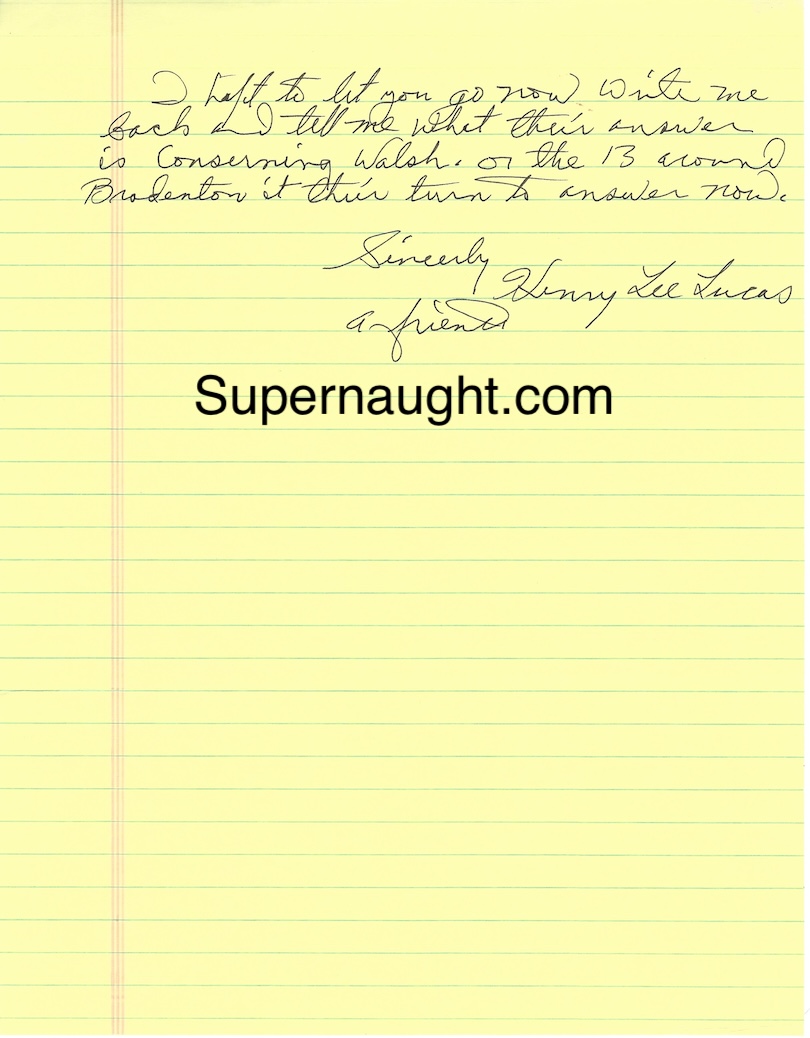 I haft to let you go now Write me
back and tell me what their answer
is Conserning Walsh. or the 13 around
Bradenton it their turn to answer now.
Sincerly
Henry Lee Lucas
a friend
Supernaught.com